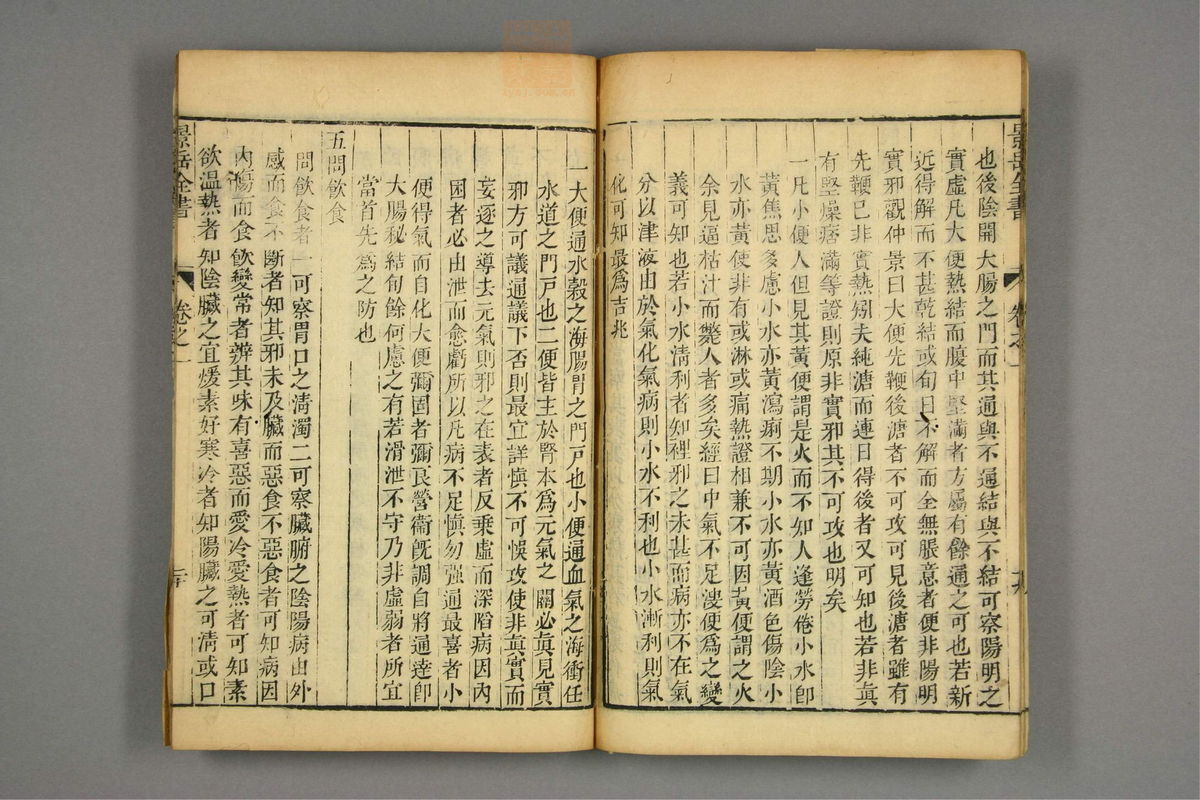 景岳全書
卷之一
十九
也後陰開大腸之門而其通與不通結與不結可察陽明之
實虛凡大便熱結而腹中堅滿者方屬有餘通之可也若新
近得解而不甚乾結或旬日不解而全無脹意者便非陽明
實邪觀仲景曰大便先鞕後溏者不可攻可見後溏者雖有
先鞕已非實熱矧夫純溏而連日得後者又可知也若非真
有堅燥痞滿等證則原非實邪其不可攻也明矣
一凡小便人但見其黃便謂是火而不知人逢勞倦小水即
黃焦思多慮小水亦黃瀉痢不期小水亦黃酒色傷陰小
水亦黃使非有或淋或痛熱證相兼不可因黃便謂之火
余見逼枯汁而斃人者多矣經曰中氣不足溲便爲之變
義可知也若小水清利者知裡邪之未甚而病亦不在氣
分以津液由於氣化氣病則小水不利也小水漸利則氣
化可知最爲吉兆
一大便通水穀之海腸胃之門戸也小便通血氣之海衝任
水道之門戸也二便皆主於腎本爲元氣之關必眞見實
邪方可議通議下否則最宜詳慎不可悞攻使非眞實而
妄逐之導去元氣則邪之在表者反乗虛而深陷病因內
困者必由泄而愈虧所以凡病不足慎勿强通最喜者小
便得氣而自化大便彌固者彌良營衞旣調自將通達即
大腸秘結旬餘何慮之有若滑泄不守乃非虛弱者所宜
當首先爲之防也
五問飲食
問飲食者一可察胃口之清濁二可察臟腑之陰陽病由外
感而食不斷者知其邪未及臟而惡食不惡食者可知病因
內傷而食飲變常者辨其味有喜惡而愛冷愛熱者可知素
欲溫熱者知陰臟之宜煖素好寒冷者知陽臟之可清或口
景岳全書
卷之一
二十